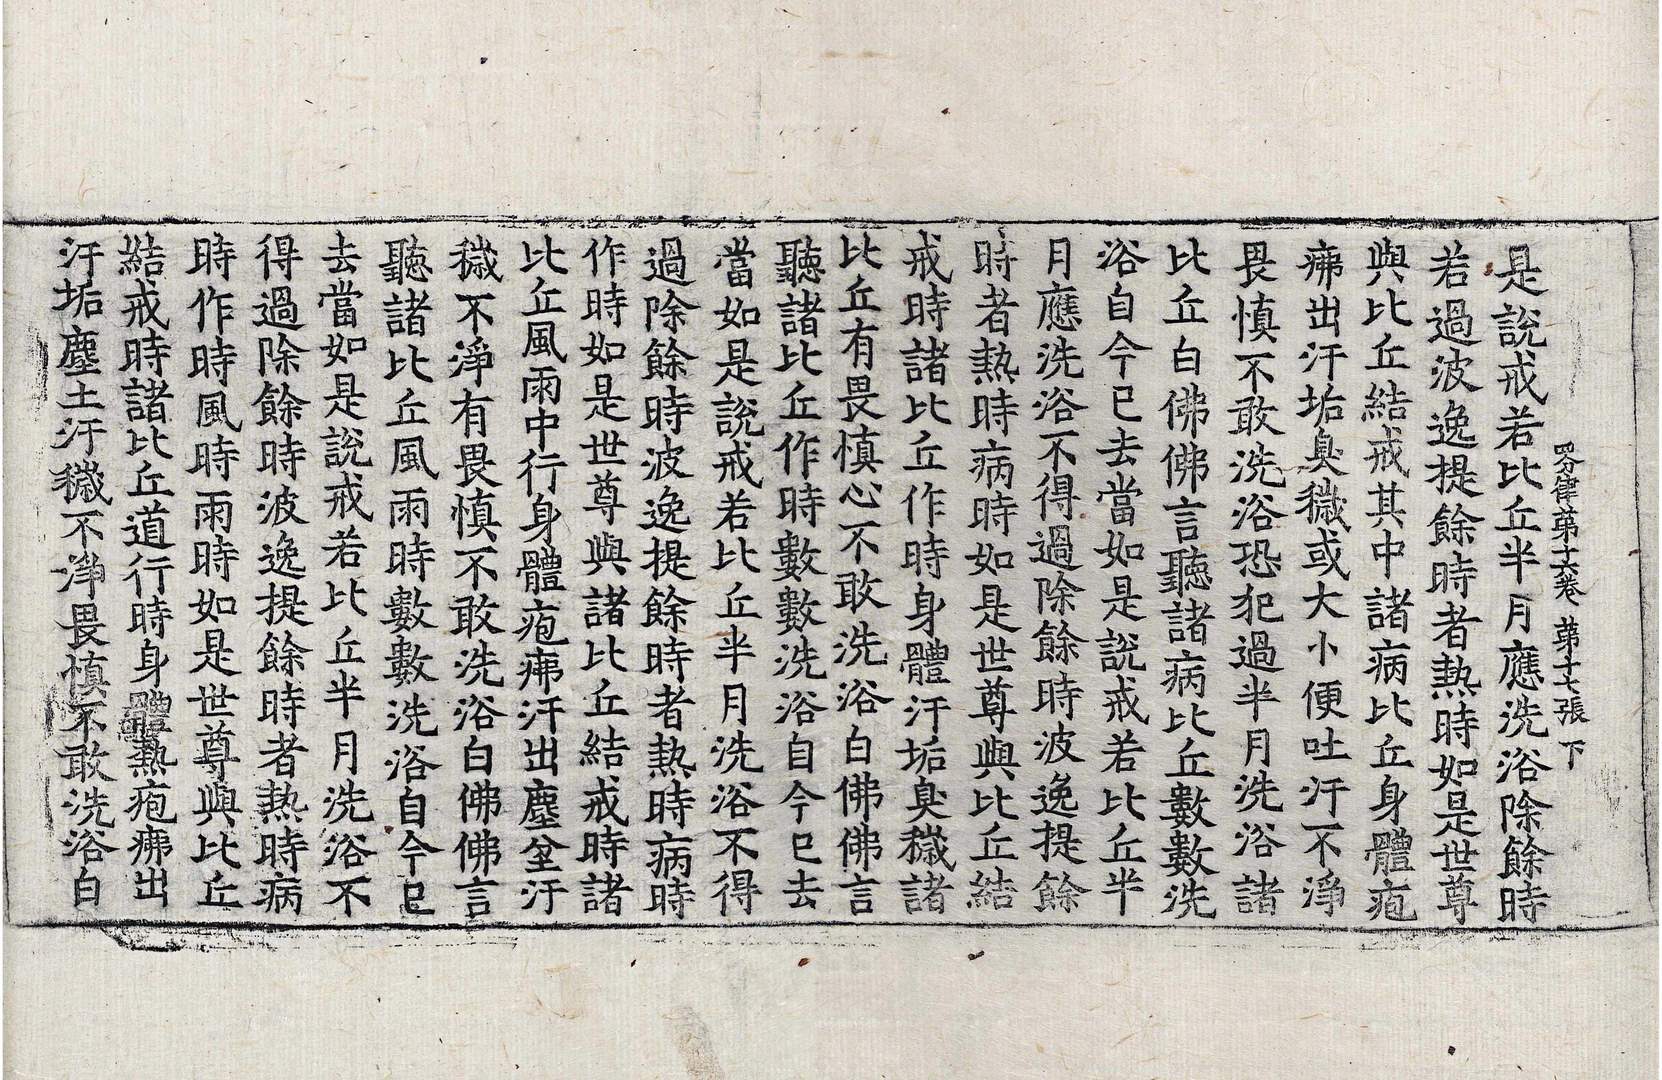 四分律第十六卷 第十七張 下
是說戒若比丘半月應洗浴除餘時
若過波逸提餘時者熱時如是世尊
與比丘結戒其中諸病比丘身體疱
疿出汗垢臭穢或大小便吐汗不淨
畏慎不敢洗浴恐犯過半月洗浴諸
比丘白佛佛言聽諸病比丘數數洗
浴自今已去當如是說戒若比丘半
月應洗浴不得過除餘時波逸提餘
時者熱時病時如是世尊與比丘結
戒時諸比丘作時身體汗垢臭穢諸
比丘有畏慎心不敢洗浴白佛佛言
聽諸比丘作時數數洗浴自今已去
當如是說戒若比丘半月洗浴不得
過除餘時波逸提餘時者熱時病時
作時如是世尊與諸比丘結戒時諸
比丘風雨中行身體疱疿汗出塵坌汗
穢不淨有畏慎不敢洗浴白佛佛言
聽諸比丘風雨時數數洗浴自今已
去當如是說戒若比丘半月洗浴不
得過除餘時波逸提餘時者熱時病
時作時風時雨時如是世尊與比丘
結戒時諸比丘道行時身體熱疱疿出
汗垢塵土汙穢不淨畏慎不敢洗浴白